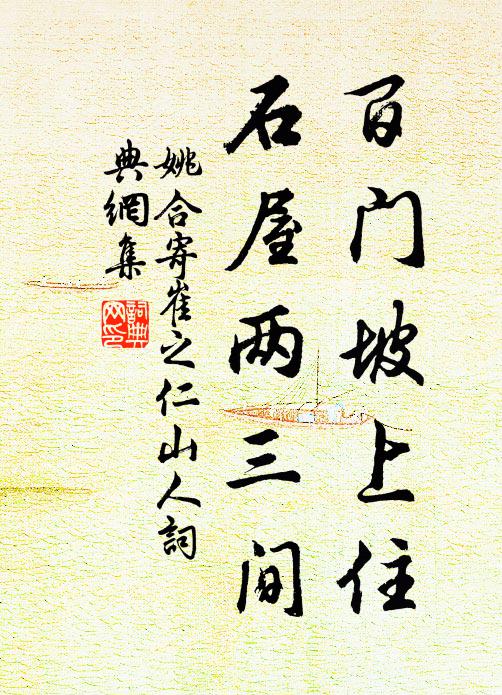 百门坡上住
石屋两三间
姚合寄崔之仁山人詞
典網集
詞典
网印